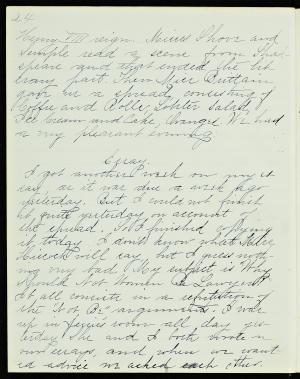 24
Henry VIII reign. Misses Shove and
Temple read a scene from Shak-
speare and that ended the lit-
erary part. Then Miss Brittain
gave us a spread, consisting of
Coffee and Rolls, Lobster Salad,
Ice Cream and Cake, Oranges. We had
a very pleasant evening.
Essay.
I got another mark on my es-
say, as it was due a week ago
yesterday. But I could not finish
it quite yesterday on account of
the spread. I finished copying
it today. I don't know what
will say, but I guess noth-
ing very bad. My subject is "Why
Should Not Women Be Lawyers"
It all consists in a refutation of
the "Not Be" arguments. I was
up in room all day yes-
terday. She and I both wrote
our essays, and when we want-
ed advice we asked each other.